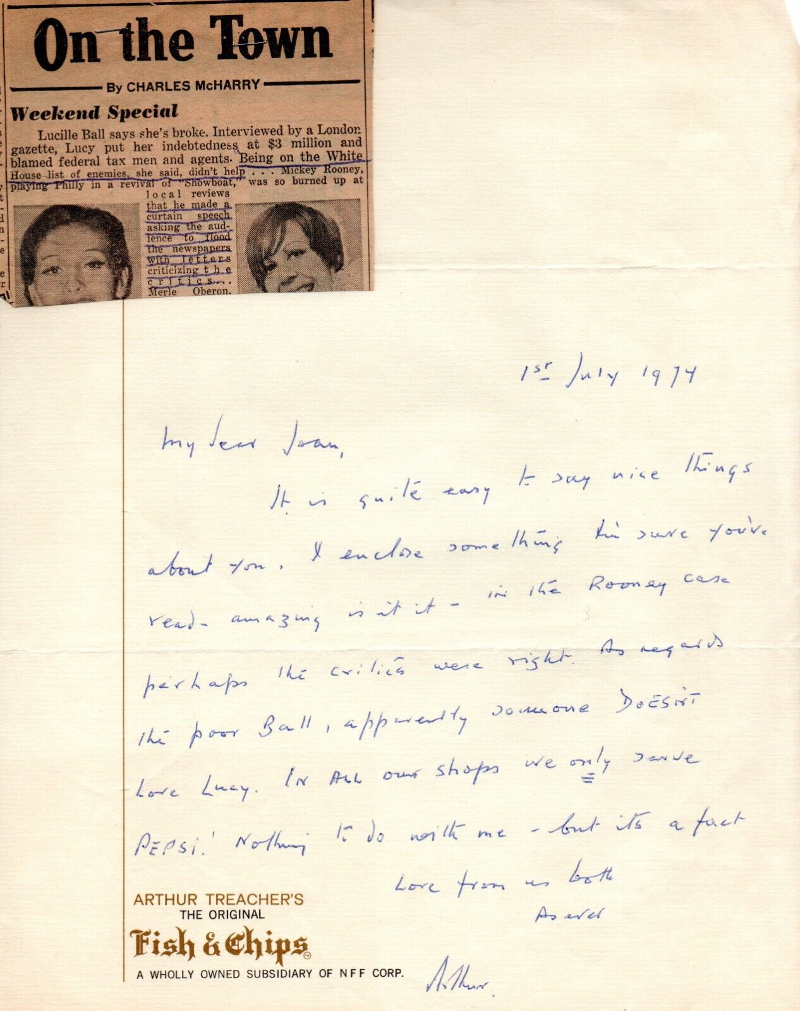 On the Town
By CHARLES McHARRY
Weekend Special
Lucille Ball says she's broke. Interviewed by a London
gazette, Lucy put her indebtedness at $3 million and
blamed federal tax men and agents. Being on the White
House list of enemies, she said, didn't help . . . Mickey Rooney,
playing Philly in a revival of "Showboat," was so burned up at
local reviews
that he made a
curtain speech
asking the aud-
ience to flood
the newspapers
with letters
criticizing the
critics...
Merle Oberon,
1st July 1974
My dear Joan,
It is quite easy to say nice things
about you. I enclose something I'm sure you've
read - amazing is it it - in the Rooney case
perhaps the critics were right. As regards
the poor Ball, apparently someone DOESN'T
Love Lucy. IN ALL our shops we only serve
PEPSI! Nothing to do with me - but its a fact
Love from us both
As ever
Arthur.
ARTHUR TREACHER'S
THE ORIGINAL
Fish & Chips
A WHOLLY OWNED SUBSIDIARY OF NFF CORP.